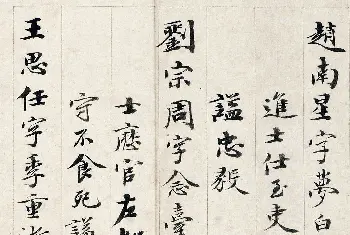 趙南星字夢白
進士仕至吏
謚忠毅
劉宗周字念臺
士歷官左
守不食死謚
王思任字季重